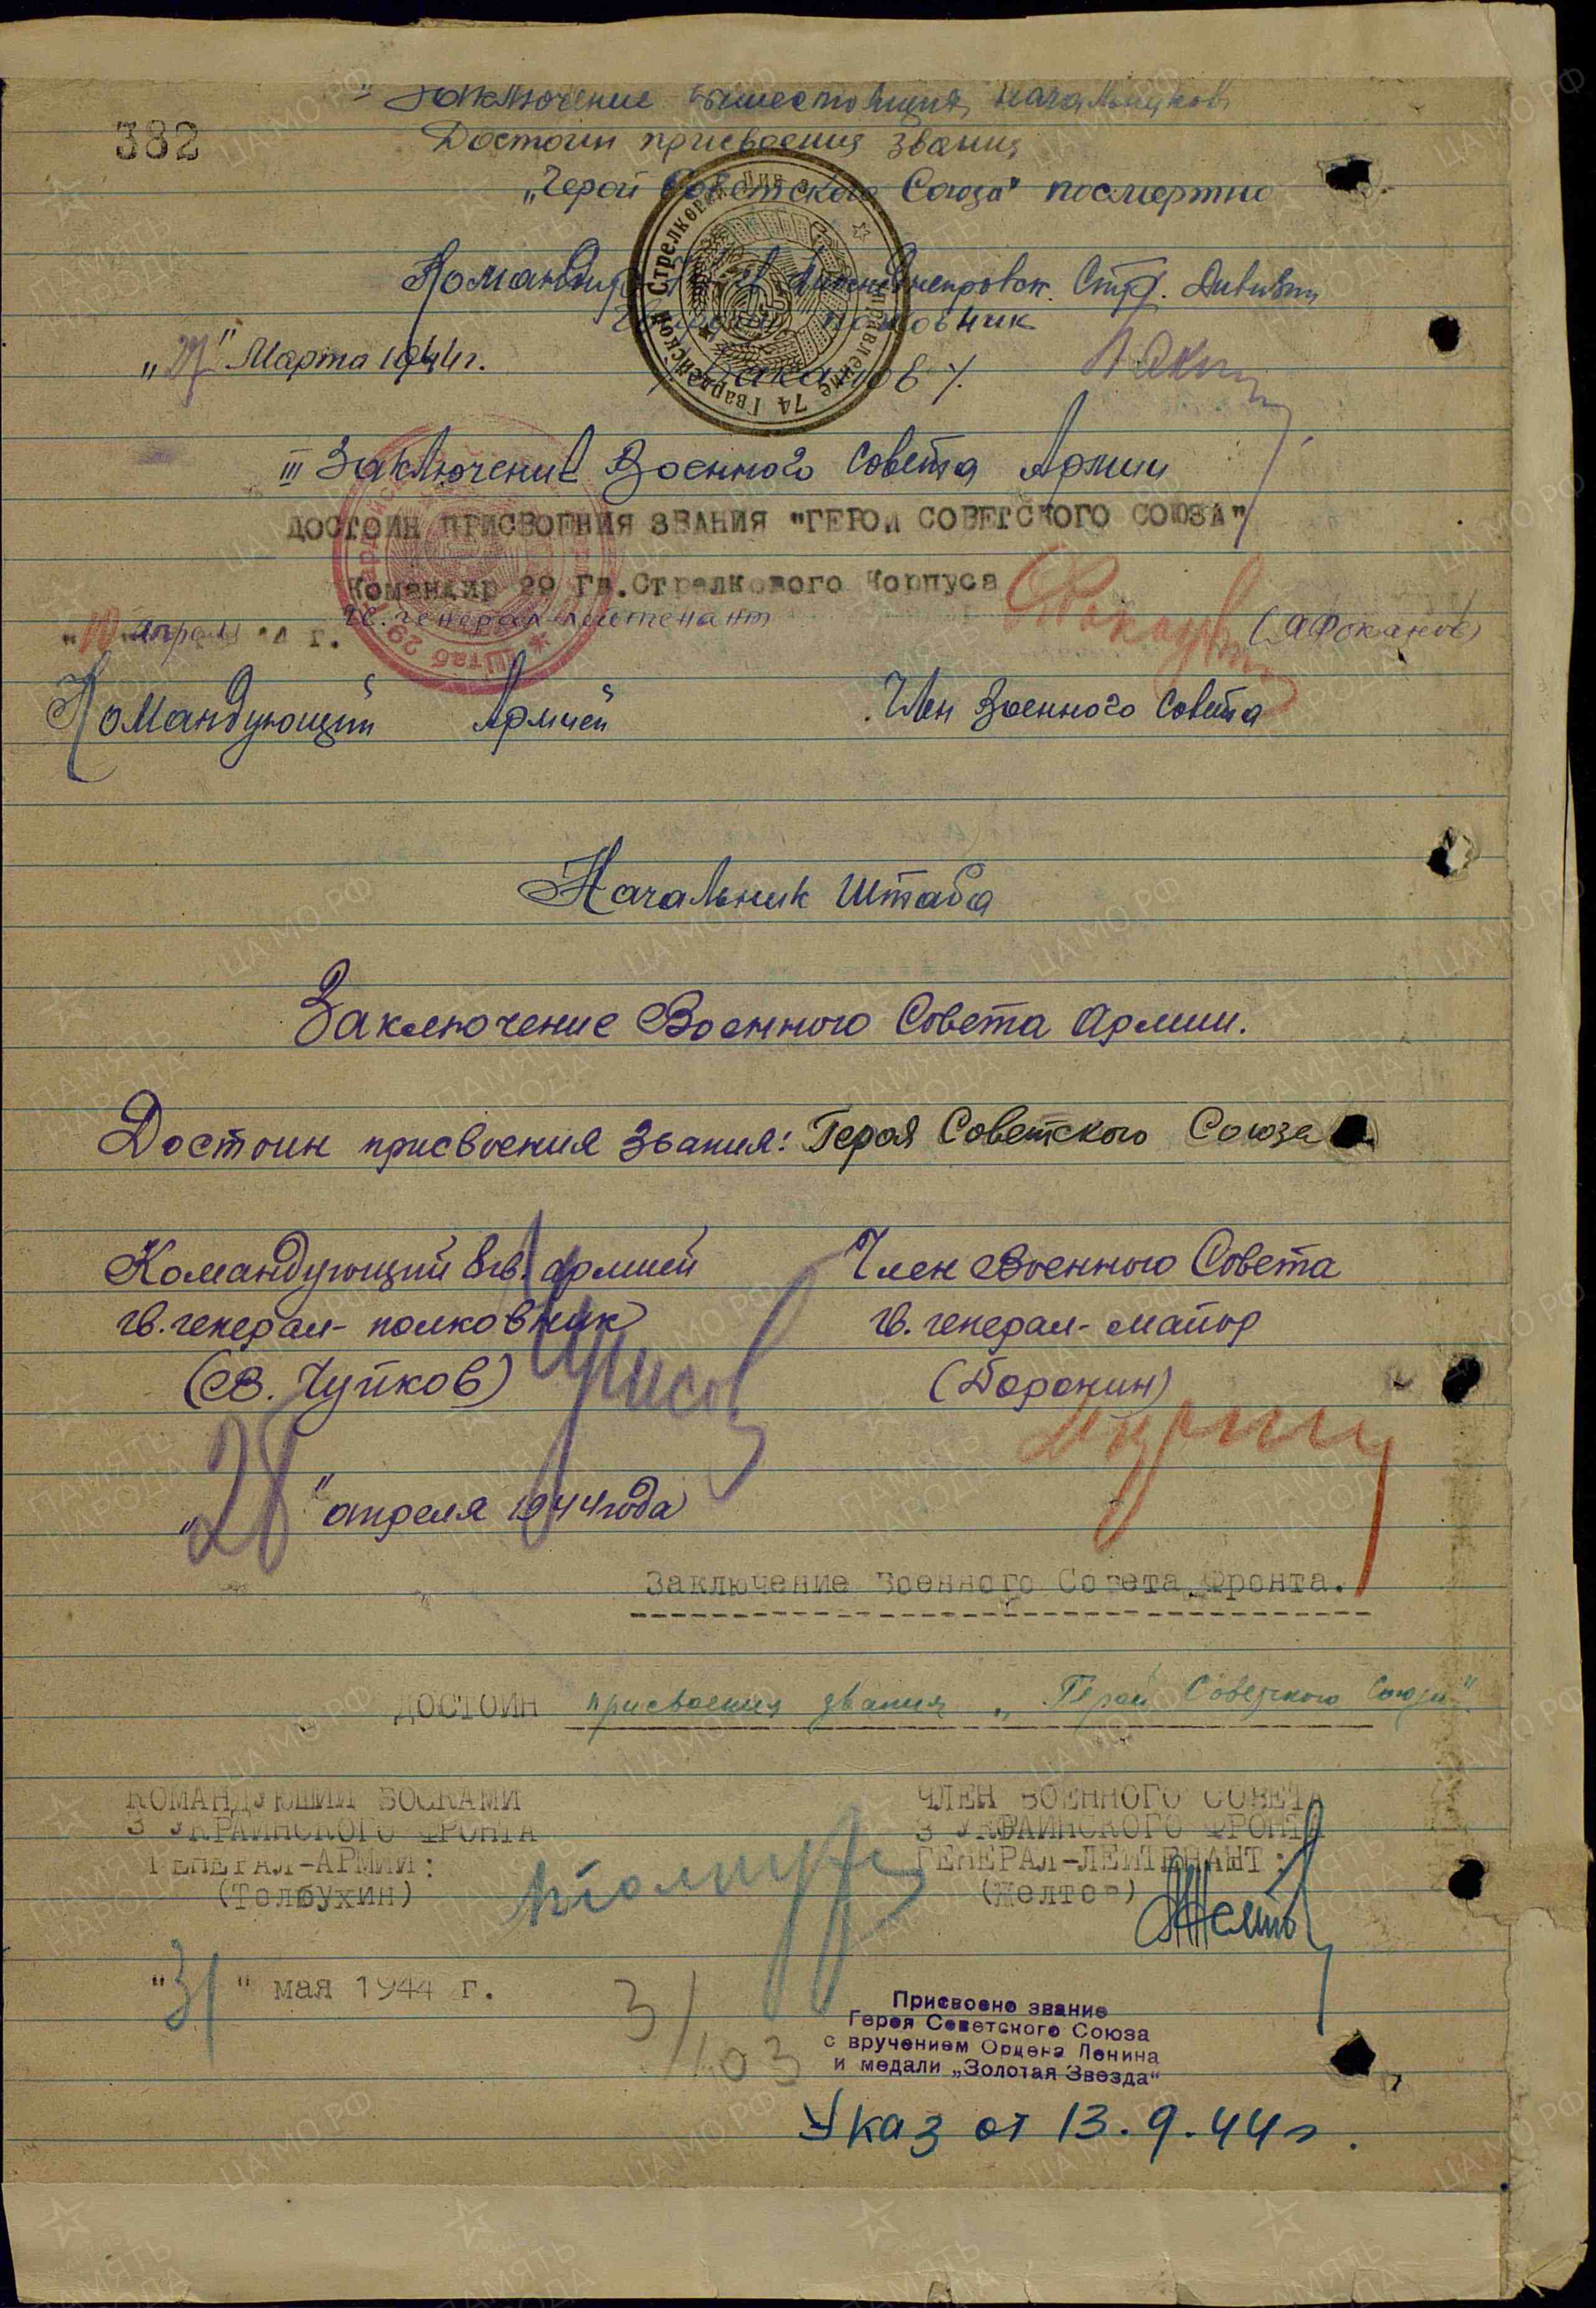 382
Заключение вышестоящих начальников
Достоин присвоения звания
„Герой Советского Союза" посмертно
Командир 74 Гв. Нижнеднепровск. Стр. Дивизии
Гвардии полковник
„27" Марта 1944 г.
/Баканов/
74 Гвардейской Стрелковой Див
Управление
III Заключение Военного Совета Армии
ДОСТОИН ПРИСВОЕНИЯ ЗВАНИЯ "ГЕРОЙ СОВЕТСКОГО СОЮЗА"
Командир 29 Гв.Стрелкового Корпуса
гв. генерал-лейтенант (Я Фоканов)
"10" апреля г.
Штаб 29
Командующий Армией Член Военного Совета
Начальник Штаба
Заключение Военного Совета Армии.
Достоин присвоения звания: Героя Советского Союза
Командующий 8 гв. армией Член Военного Совета
гв. генерал-полковник гв. генерал-майор
(В. Чуйков) (Доронин)
„28" апреля 1944 года
Заключение Военного Совета Фронта.
ДОСТОИН присвоения звания „Герой Советского Союза".
КОМАНДУЮЩИЙ ВОСКАМИ ЧЛЕН ВОЕННОГО СОВЕТА
3 УКРАИНСКОГО ФРОНТА 3 УКРАИНСКОГО ФРОНТА
ГЕНЕРАЛ-АРМИИ: ГЕНЕРАЛ-ЛЕЙТЕНАНТ:
(Толбухин) (Желтов)
"31" мая 1944 г.
3/103
Присвоено звание
Героя Советского Союза
с вручением Ордена Ленина
и медали „Золотая Звезда"
Указ от 13.9.44 г.
ПАМЯТЬ НАРОДА
ЦА МО РФ